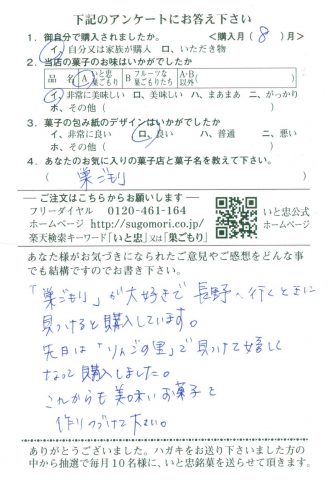 下記のアンケートにお答え下さい
1. 御自分で購入されましたか。 <購入月( 8 )月>
イ. 自分又は家族が購入 ロ、いただき物
2. 当店の菓子のお味はいかがでしたか
品 名 A いと忠巣ごもり B フルーツな巣ごもりたち A・B以外( )
イ. 非常に美味しい ロ、美味しい ハ、まあまあ ニ、がっかり
ホ、その他( )
3. 菓子の包み紙のデザインはいかがでしたか
イ、非常に良い ロ、良い ハ、普通 ニ、悪い
ホ、その他( )
4. あなたのお気に入りの菓子店と菓子名を教えて下さい。
( 巣ごもり )
ご注文はこちらからお願いします
フリーダイヤル 0120-461-164
ホームページ http://sugomori.co.jp/
楽天検索キーワード「いと忠」又は「巣ごもり」
いと忠公式
ホームページ
あなた様がお気づきになられたご意見やご感想をどんな事
でも結構ですのでお書き下さい。
「巣ごもり」が大好きで 長野へ行くときに
見つけると購入しています。
先日は「りんごの里」で見つけて嬉しく
なって購入しました。
これからも美味しいお菓子を
作りつづけて下さい。
ありがとうございました。ハガキをお送り下さいました方の
中から抽選で毎月10名様に、いと忠銘菓を送らせて頂きます。